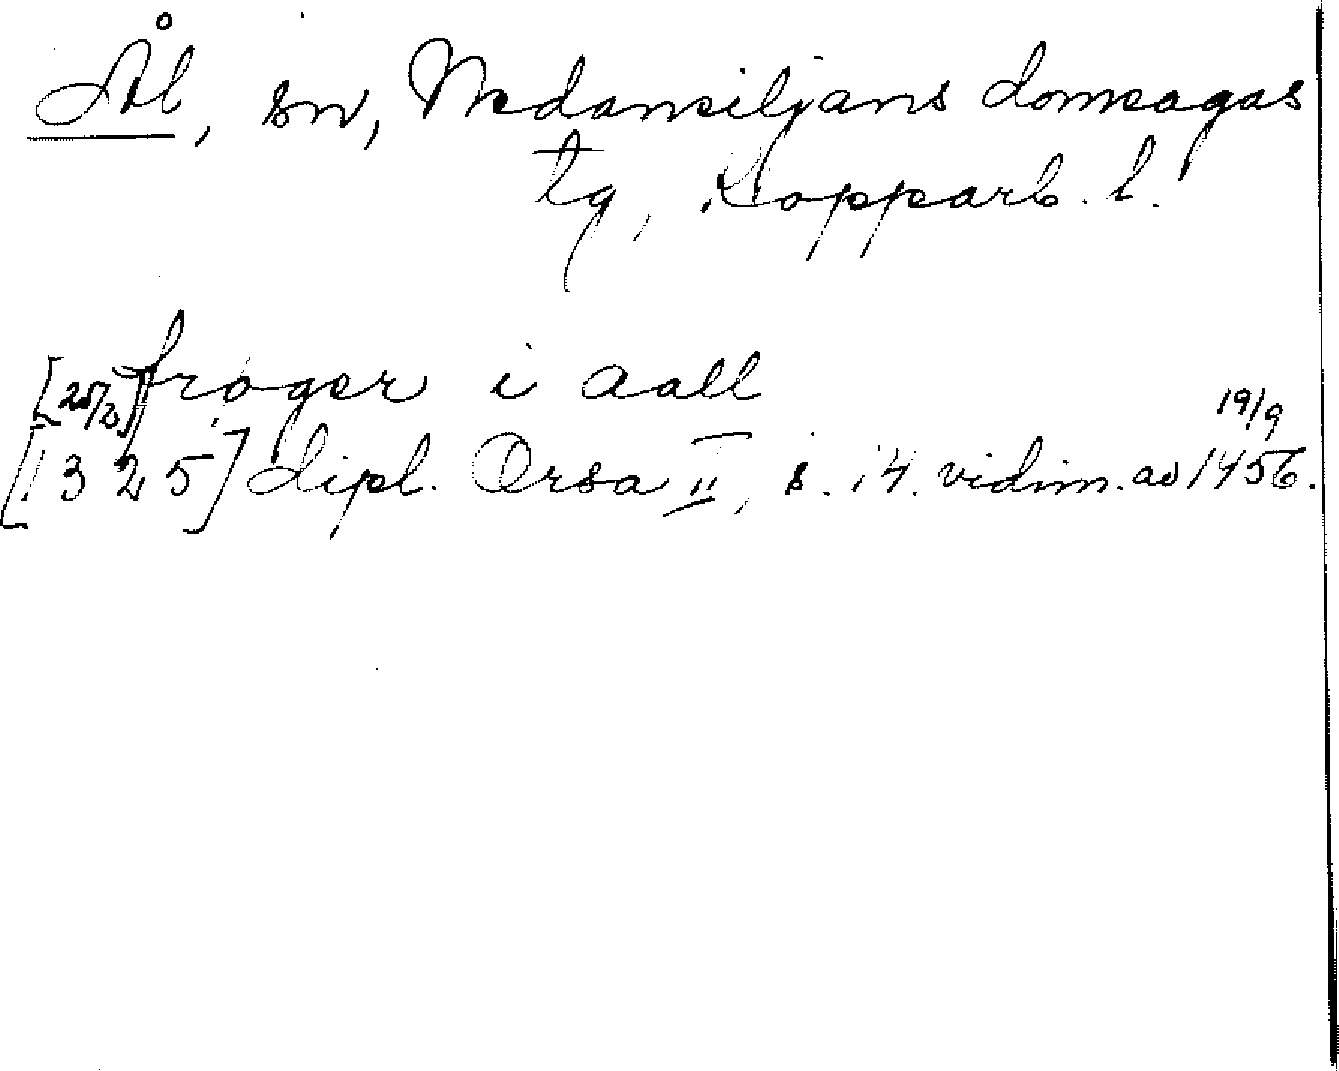 Ål, sn, Nedansiljans domsagas
tg, Kopparb. l.
froger i aall
19/9
[1325] dipl. Orsa II, s. 14. vidim. av 1456.